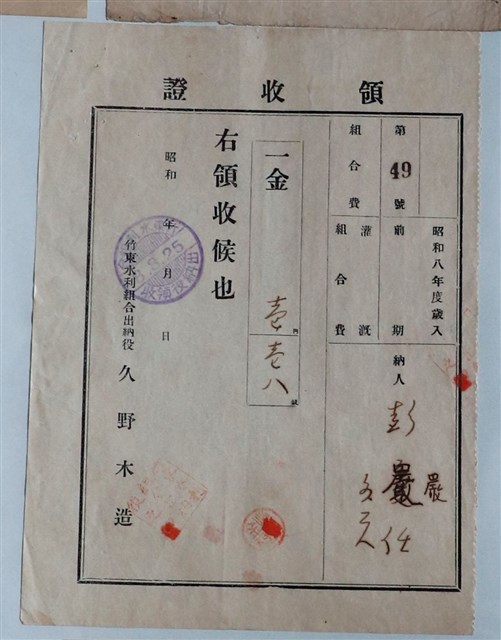 領收證
昭和八年度歲入
第49號
前期
組合費
灌溉組合費
納人
彭嚴
嚴
任
一金
壱円壱八錢
右領收候也
昭和 年 月 日
竹東水利組合出納役 久野木造